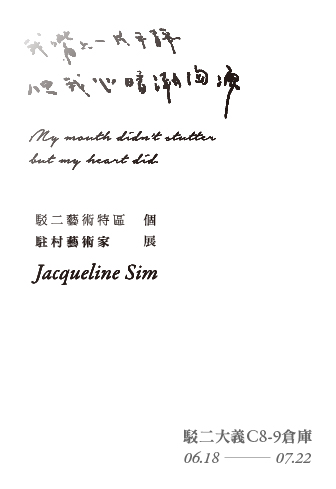 我嘴上一片平靜
但我心暗潮洶湧
My mouth didn't stutter
but my heart did.
駁二藝術特區 個
駐村藝術家 展
Jacqueline Sim
駁二大義C8-9倉庫
06.18 —— 07.22